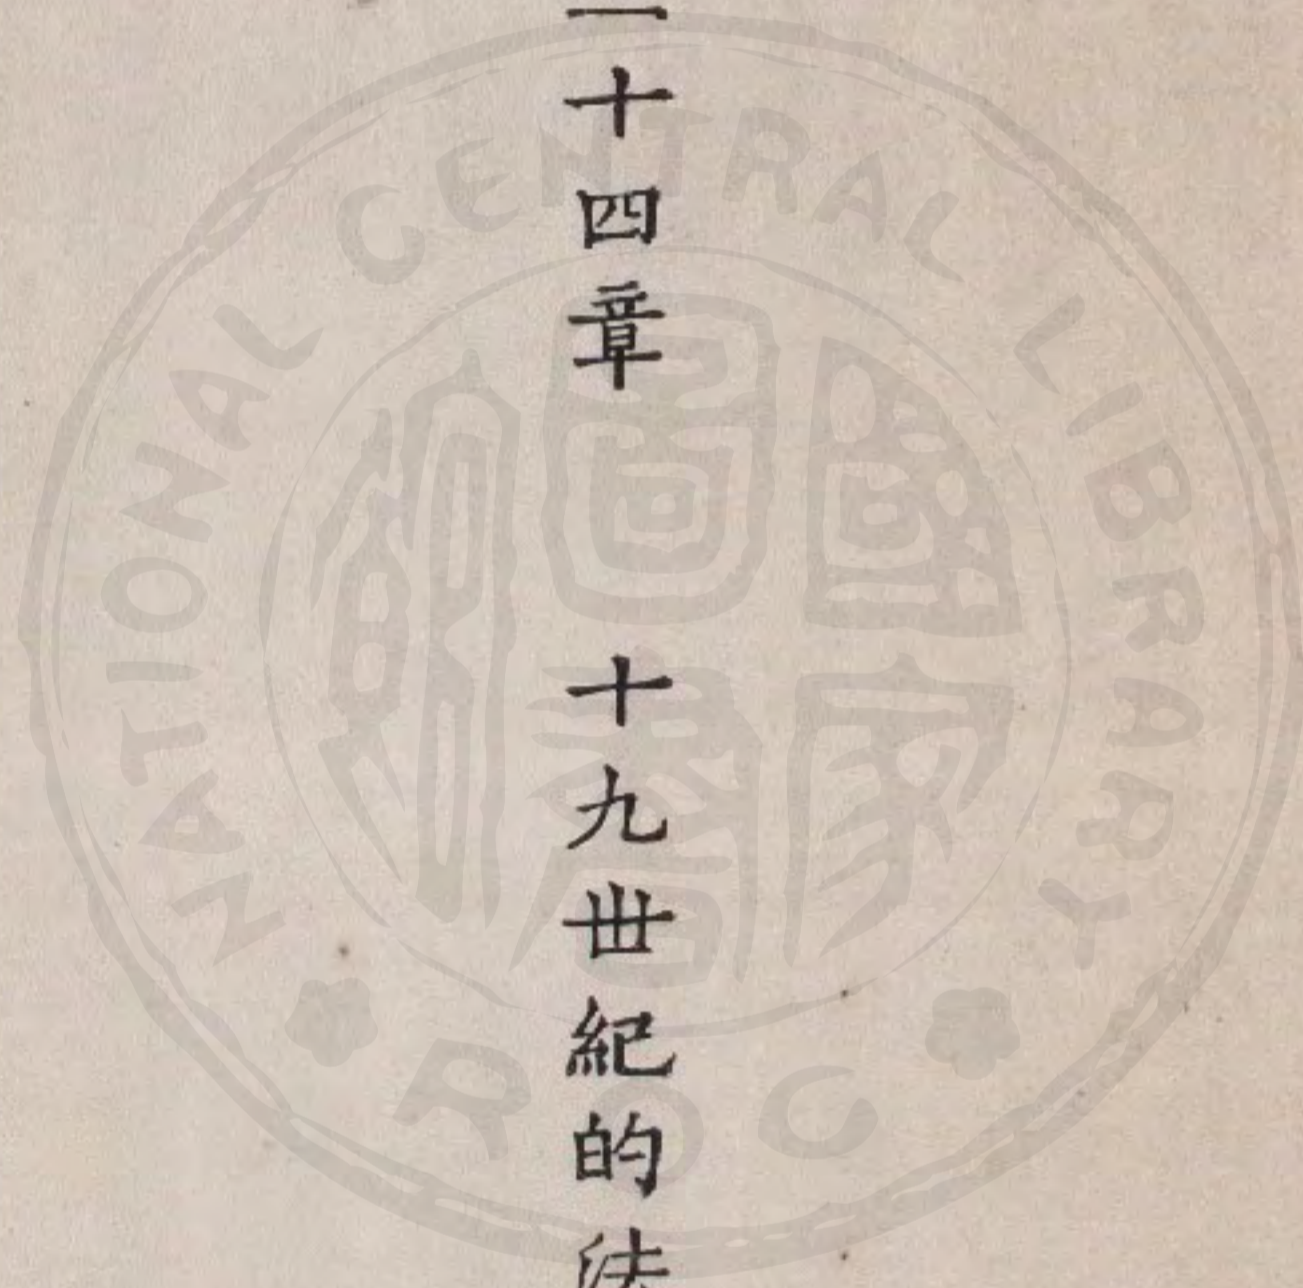 十四章　十九世紀的法
NATIONAL CENTRAL LIBRARY
國家圖書館
ROC